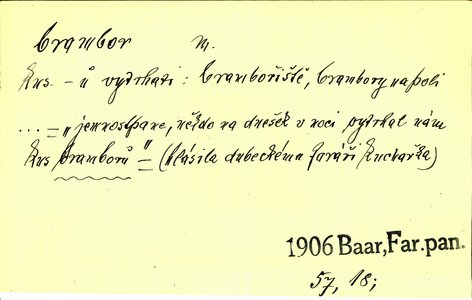 brambor m.
kus -ů vytrhati: bramboříště, brambory na poli
... = „jemnostpane, někdo na dnešek v noci vytrhal nám
kus bramborů" = (hlásila dubeckému faráři kuchařka)
1906 Baar, Far. pan.
57, 18;